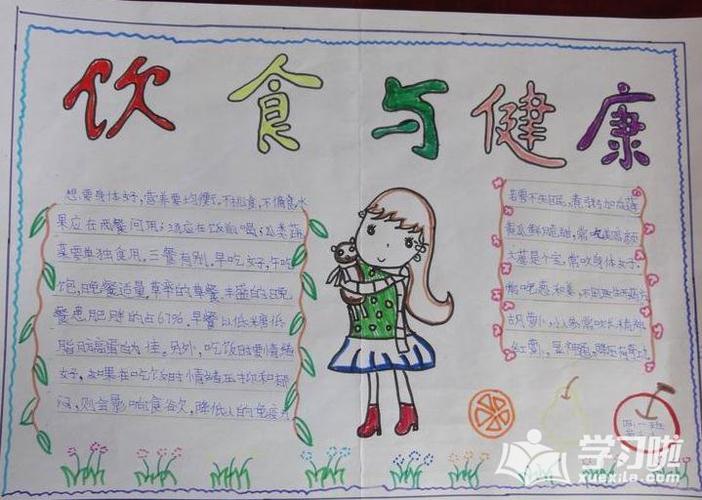 饮食与健康
想要身体好,营养要均衡,不挑食,不偏食,水
果应在两餐间用;汤应在饭前喝;瓜类蔬
菜要单独食用,三餐有别,早吃好,午吃
饱,晚餐适量,草率的早餐丰盛的晚
餐患肥胖的占67%,早餐以低糖低
脂肪高蛋白为佳。另外,吃饭时要情绪
好,如果在吃饭时情绪压抑和郁
闷,则会影响食欲,降低人的免疫力
若要不失眠,煮粥加白莲
黄瓜鲜脆甜,常吃美容颜
大蒜是个宝,常吃身体好
胡萝卜,小人参,常吃长精神
四一班
学习啦
xuexila.com